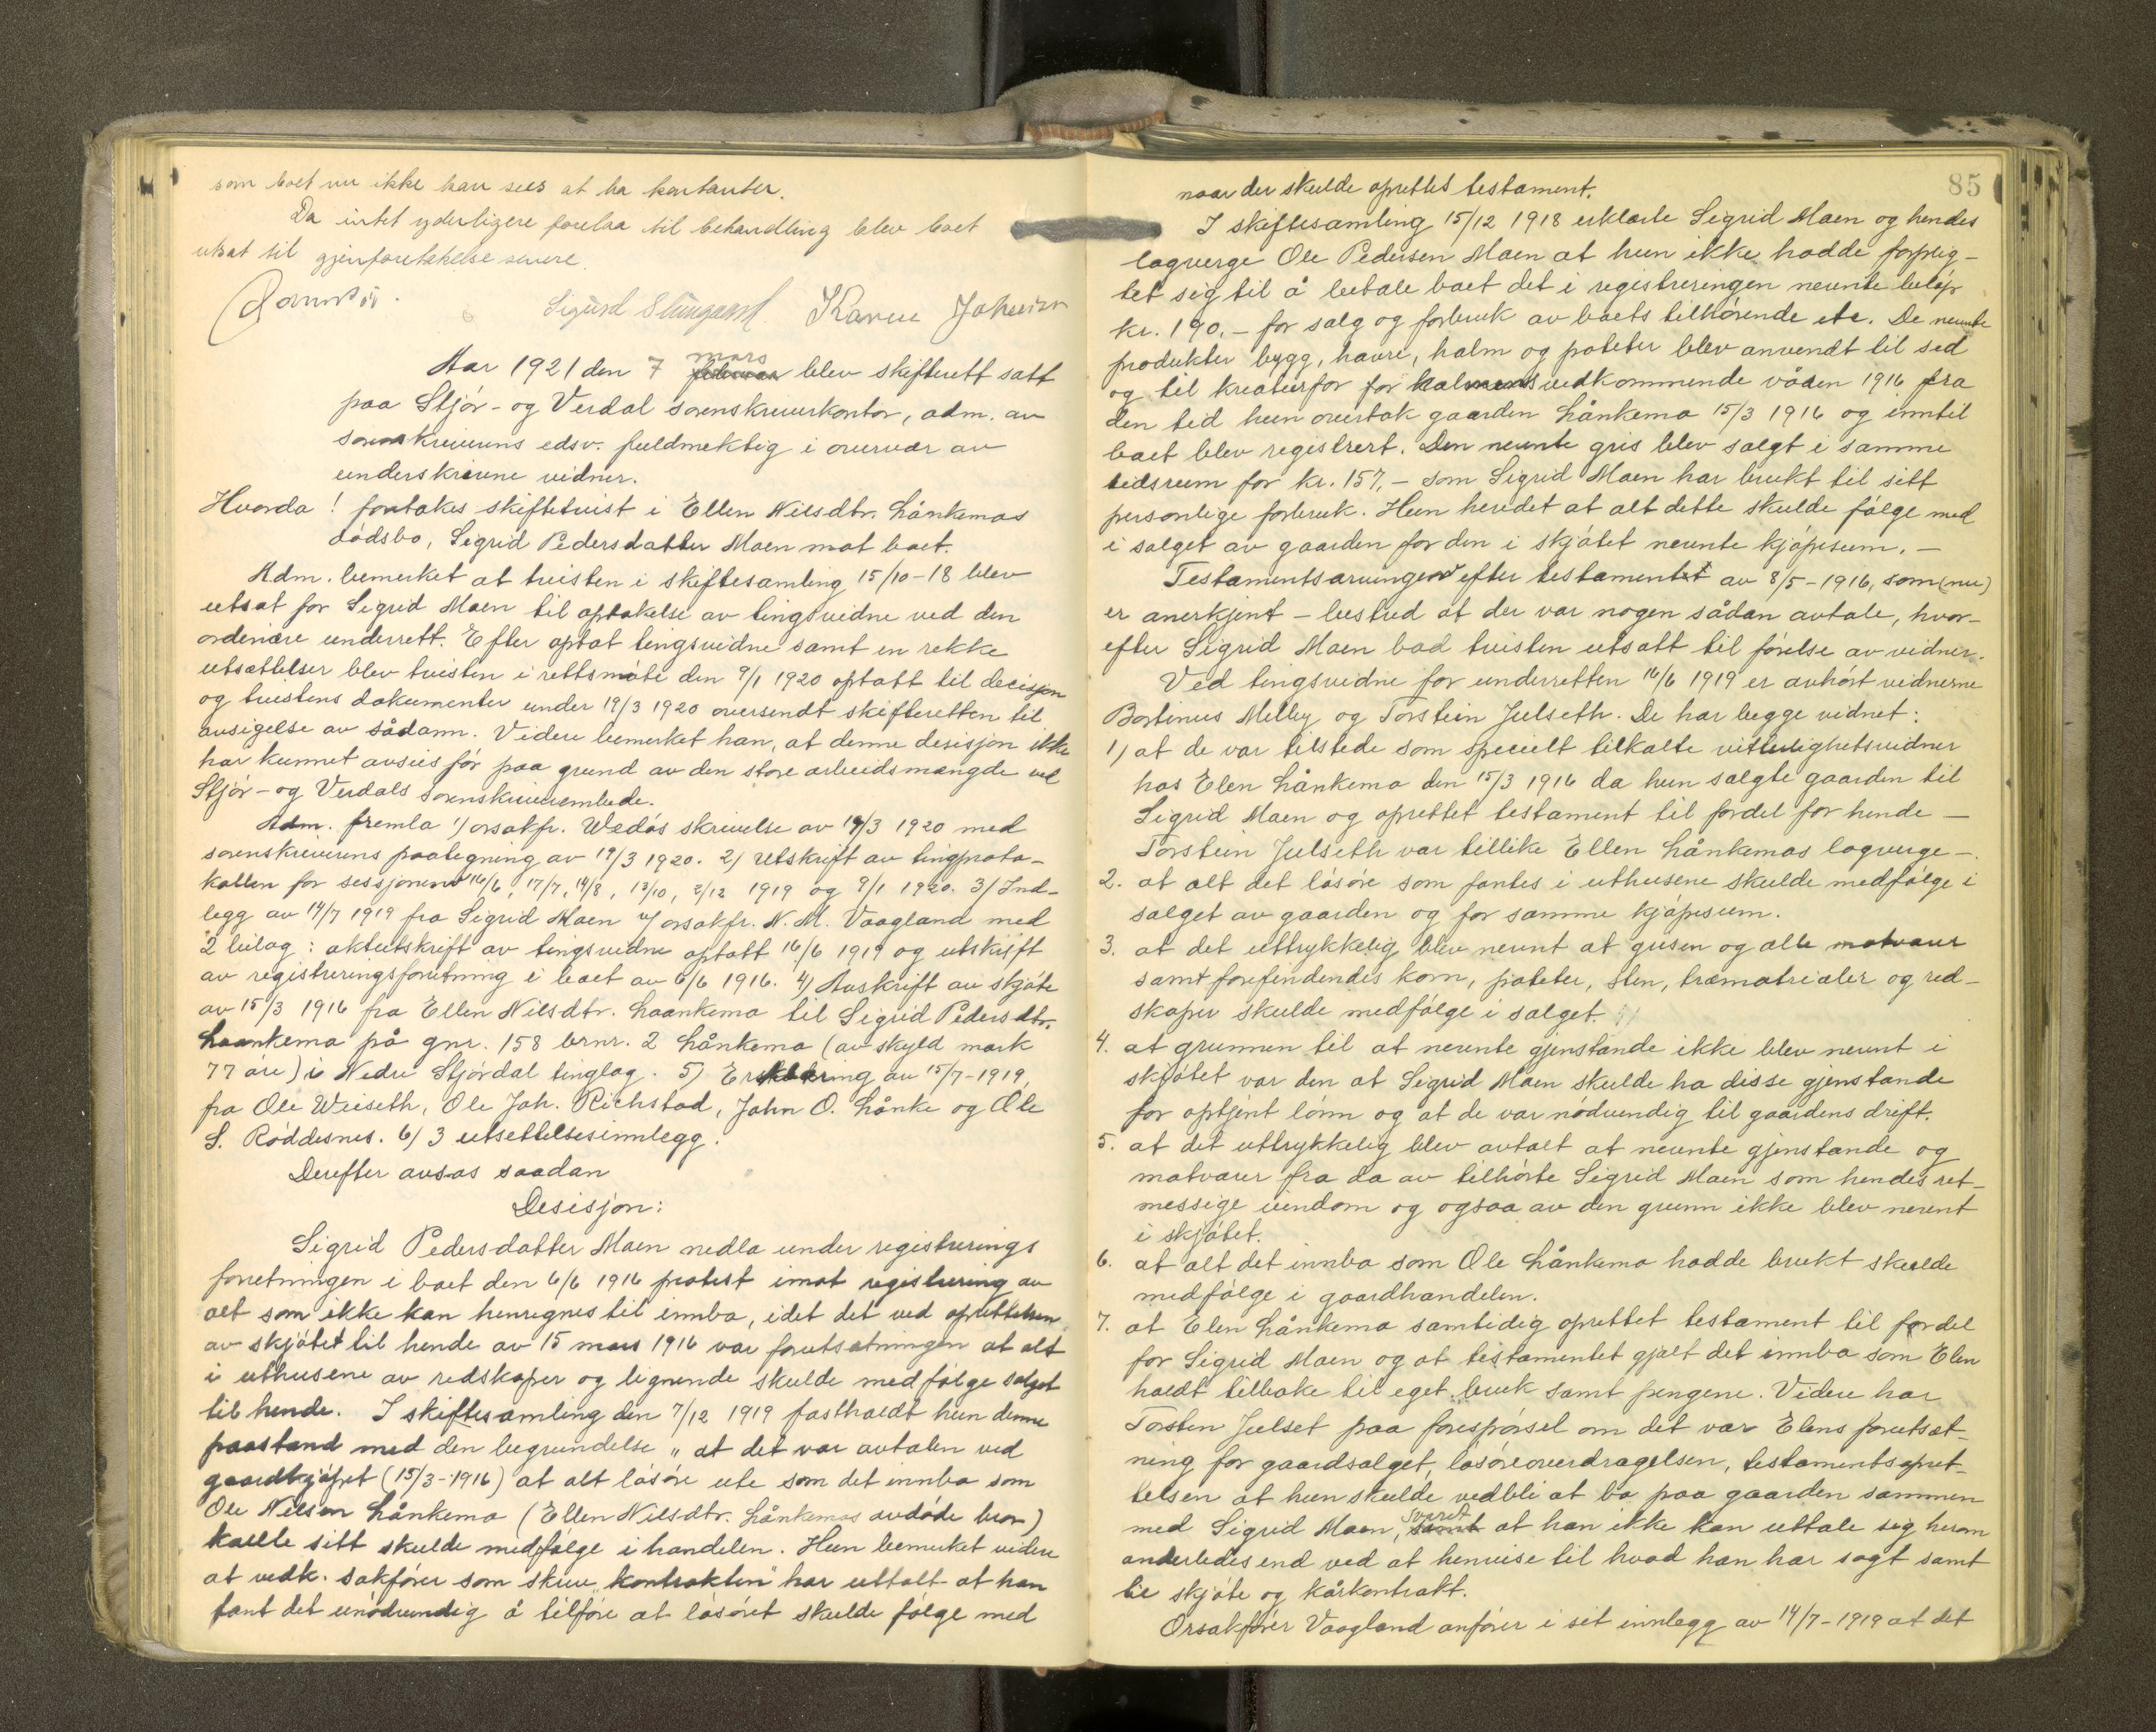 som boet nu ikke kan sees at ha kontanter.
Da intet yderligere forelaa til behandling blev boet
utsat til gjenforetakelse senere.
Sigurd Karen Johnsen
Aar 1921 den 7 mars februar blev skifterett satt
paa Stjór- og Verdal sorenskriverkontor, adm. av
sorenskriverens edsv. fuldmektig i overvær av
underskrevne vidner.
Hvorda! foretakes skiftetvist i Ellen Nilsdtr. Lånkemos
dódsbo, Sigrid Pedersdatter Moen mot boet.
Adm. bemerket at tvisten i skiftesamling 15/10-18 blev
utsat for Sigrid Moen til optakelse av tingsvidne ved den
ordinære underrett. Efter optat tingsvidne samt en rekke
utsættelser blev tvisten i rettsmóte den 9/1 1920 optatt til decisjon
og tvistens dokumenter under 19/3 1920 oversendt skifteretten til
avsigelse av sådann. Videre bemerket han, at denne desisjon ikke
har kunnet avsies fór paa grund av den store arbeidsmængde ved
Stjór- og Verdals sorenskriverembede.
Adm. fremla 1) orsakfr. Wedós skrivelse av 19/3 1920 med
sorenskriverens paategning av 19/3 1920. 2) Utskrift av tingproto-
kollen for sessjonene 16/6, 17/7, 14/8, 13/10, 2/12 1919 og 9/1 1920. 3) Ind-
legg av 14/7 1919 fra Sigrid Moen v/ orsakfr. N. M. Vaagland med
2 bilag: aktutskrift av tingsvidne optatt 16/6 1919 og utskrift
av registreringsforretning i boet av 6/6 1916. 4) Avskrift av skjóte
av 15/3 1916 fra Ellen Nilsdtr. Laankemo til Sigrid Pedersdtr.
Laankemo på gnr. 158 brnr. 2 Lånkemo (av skyld mark
77 óre) i Nedre Stjórdal tinglag. 5) Erklæring av 15/7-1919
fra Ole Weiseth, Ole Joh. Richstad, John O. Lånke og Ole
S. Róddesnes. 6) 3 utsettelsesinnlegg.
Derefter avsas saadan
Desisjon:
Sigrid Pedersdatter Moen nedla under registrerings
forretningen i boet den 6/6 1916 protest imot registrering av
alt som ikke kan henregnes til innbo, idet det ved oprettelsen
av skjótet til hende av 15 mars 1916 var forutsætningen at alt
i uthusene av redskaper og lignende skulde medfólge salget
til hende. I skiftesamling den 7/12 1919 fastholdt hun denne
paastand med den begrundelse "at det var avtalen ved
gaardkjópet (15/3-1916) at alt lósóre ute som det innbo som
Ole Nilsen Lånkemo (Ellen Nilsdtr. Lånkemos avdóde bror)
kalte sitt skulde medfólge i handelen. Hun bemerket videre
at vedk. sakfórer som skrev "kontrakten" har uttalt at han
fant det unódvendig å tilfóre at lósóret skulde fólge med
85
naar der skulde oprettes testament.
I skiftesamling 15/12 1918 erklærte Sigrid Moen og hendes
lagverge Ole Pedersen Moen at hun ikke hadde forplig-
tet sig til å betale boet det i registreringen nevnte belóp
kr. 190,- for salg og forbruk av boets tilhórende etc. De nevnte
produkter bygg, havre, halm og poteter blev anvendt til sed
og til kreaturfor for halmens vedkommende våren 1916 fra
den tid hun overtok gaarden Lånkemo 15/3 1916 og inntil
boet blev registrert. Den nevnte gris blev solgt i samme
tidsrum for kr. 157,- som Sigrid Moen har brukt til sitt
personlige forbruk. Hun hevdet at alt dette skulde fólge med
i salget av gaarden for den i skjótet nevnte kjópesum. -
Testamentsarvingene efter testamentet av 8/5-1916, som (nu)
er anerkjent - bestred at der var nogen sådan avtale, hvor-
efter Sigrid Moen bad tvisten utsatt til fórelse av vidner.
Ved tingsvidne for underretten 16/6 1919 er avhórt vidnerne
Bortinus Melby og Torstein Julseth. De har begge vidnet:
1) at de var tilstede som specielt tilkalte vitterlighetsvidner
hos Elen Lånkemo den 15/3 1916 da hun solgte gaarden til
Sigrid Moen og oprettet testament til fordel for hende -
Torstein Julseth var tillike Ellen Lånkemos lagverge -.
2. at alt det lósóre som fantes i uthusene skulde medfólge i
salget av gaarden og for samme kjópesum.
3. at det uttrykkelig blev nevnt at grisen og alle matvarer
samt forefindendes korn, poteter, sten, træmatrialer og red-
skaper skulde medfólge i salget.
4. at grunnen til at nevnte gjenstande ikke blev nevnt i
skjótet var den at Sigrid Moen skulde ha disse gjenstande
for optjent lónn og at de var nódvendig til gaardens drift.
5. at det uttrykkelig blev avtalt at nevnte gjenstande og
matvarer fra da av tilhórte Sigrid Moen som hendes ret-
messige eiendom og ogsaa av den grunn ikke blev nevnt
i skjótet.
6. at alt det innbo som Ole Lånkemo hadde brukt skulde
medfólge i gaardhandelen.
7. at Elen Lånkemo samtidig oprettet testament til fordel
for Sigrid Moen og at testamentet gjalt det innbo som Elen
holdt tilbake til eget bruk samt pengene. Videre har
Torsten Julset paa forespórsel om det var Elens forutsæt-
ning for gaardsalget, lósóreoverdragelsen, testamentsopret-
telsen at hun skulde vedbli at bo paa gaarden sammen
med Sigrid Moen, svaret samt at han ikke kan uttale sig herom
anderledes end ved at henvise til hvad han har sagt samt
til skjóte og kårkontrakt.
Orsakfórer Vaagland anfórer i sit innlegg av 14/7-1919 at det